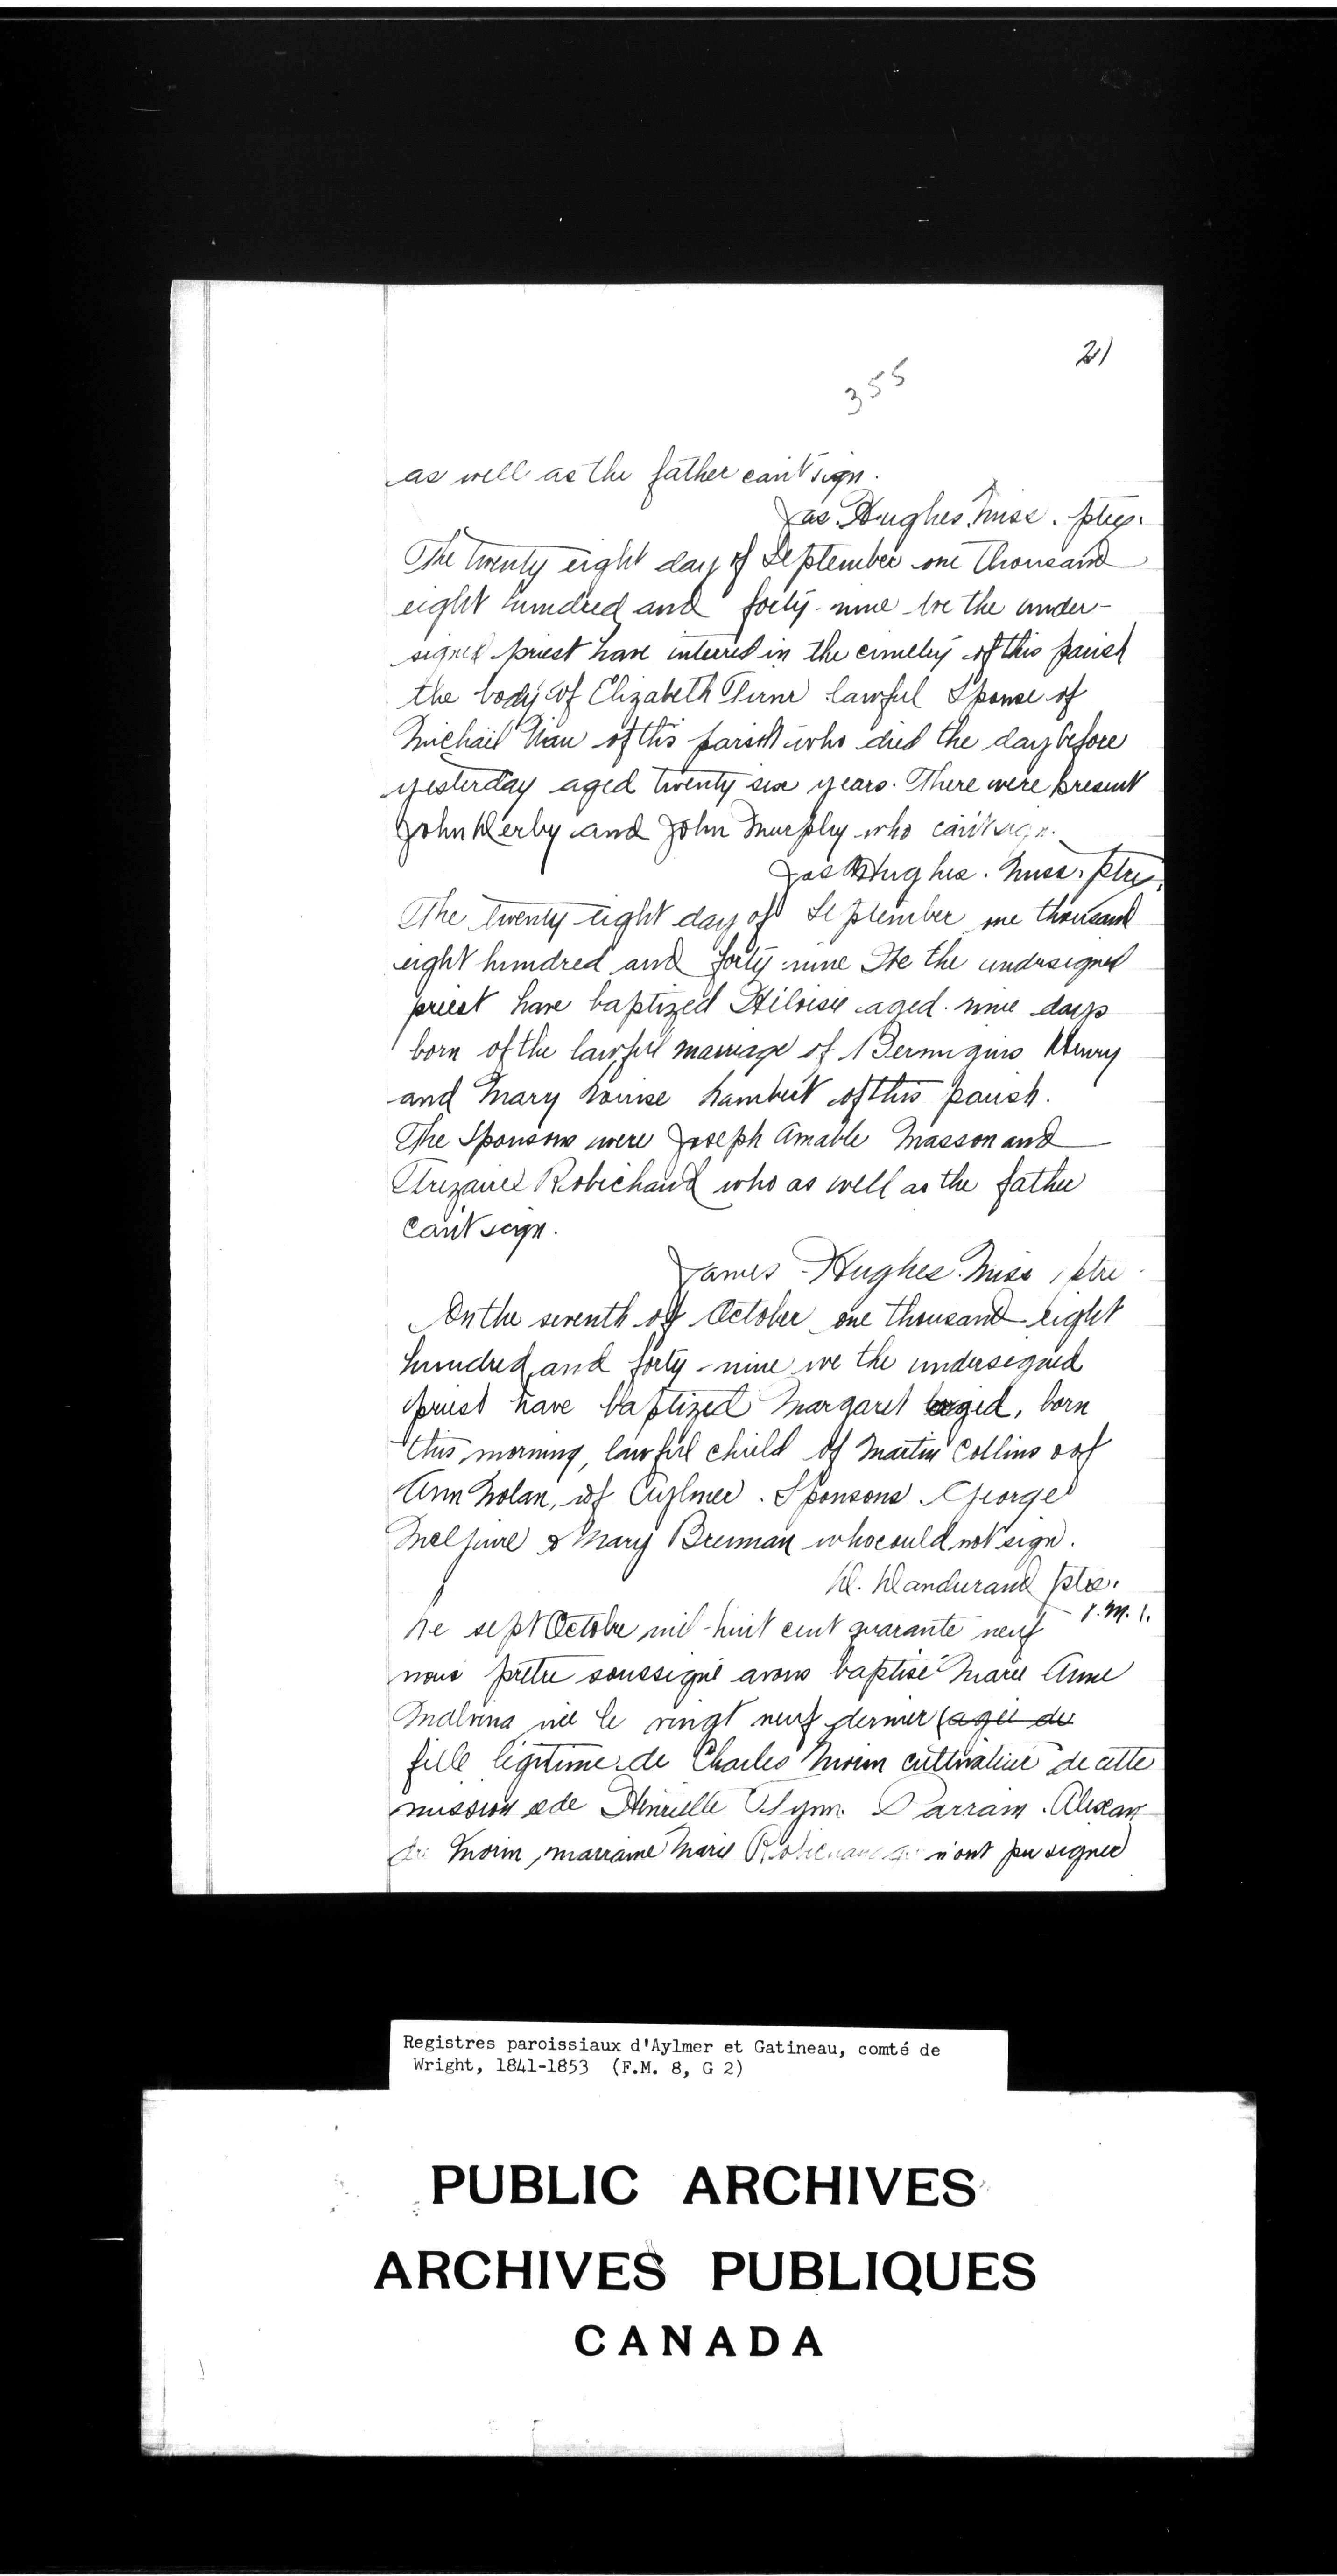 21
355
as well as the father can't sign.
Jas. Hughes. Miss. ptre.
The twenty eight day of September one thousand
eight hundred and forty-nine We the under-
signed priest have interred in the cimetery of this parish
the body of Elizabeth lawful Spouse of
Michael of this parish who died the day before
yesterday aged twenty six years. There were present
John Kerby and John Murphy who can't sign.
Jas Hughes. Miss. ptre.
The twenty eight day of September one thousand
eight hundred and forty-nine We the undersigned
priest have baptized aged nine days
born of the lawful marriage of Henry
and Mary Louise Lambert of this parish.
The Sponsors were Joseph Amable Masson and
Robichaud who as well as the father
can't sign.
James Hughes. Miss. ptre
On the seventh of October one thousand eight
hundred and forty-nine we the undersigned
priest have baptized Margaret born
this morning, lawful child of Martin Collins & of
Ann Nolan, of Aylmer. Sponsors George
& Mary Brennan who could not sign.
D. Dandurand ptre.
V.M.G.
Le sept Octobre mil-huit cent quarante neuf
nous prêtre soussigné avons baptisé Marie Anne
Malvina née le vingt neuf dernier (agée de
fille légitime de Charles Morin cultivateur de cette
mission & de Henriette Flynn. Parrain. Alexan
dre Morin, marraine Marie n'ont pu signer
Registres paroissiaux d'Aylmer et Gatineau, comté de
Wright, 1841-1853 (F.M. 8, G 2)
PUBLIC ARCHIVES
ARCHIVES PUBLIQUES
CANADA